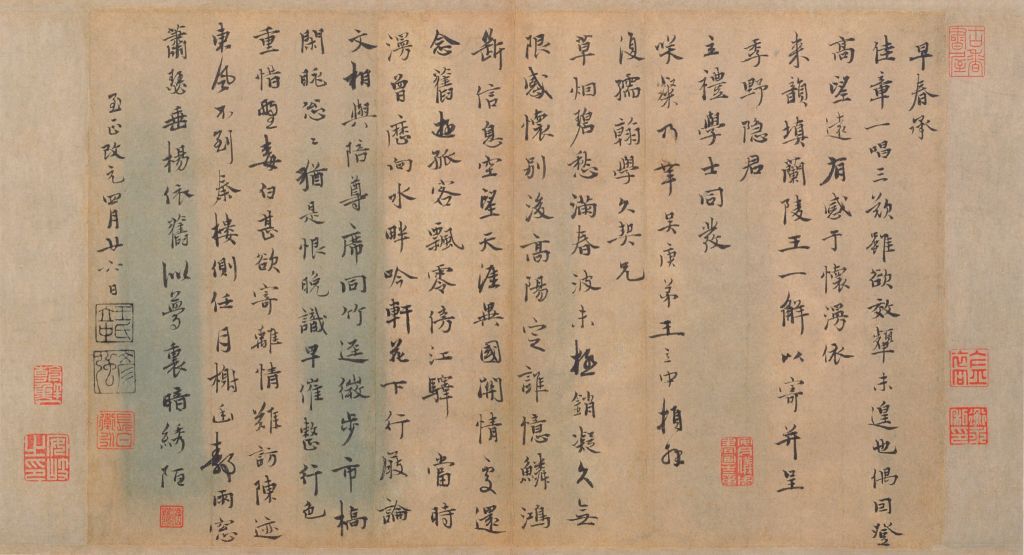 早春承
佳章一唱三歎雖欲效顰未遑也偶因登
高望遠有感于懷漫依
來韻填蘭陵王一解以寄并呈
季野隐君
主禮學士同發
咲粲乃幸吴庚弟王立中頓
復孺翰學久契兄
草烟碧愁滿春波未極銷凝久無
限感懷別後高陽定誰憶鱗鴻
斷信息空望天涯異國閑情更還
念舊遊孤客飄零傍江驛 當時
湧曾歷向水畔吟軒花下行廚論
文相與陪尊席同竹逕微步市橋
閑眺忩〻猶是恨晚識早催整行色
重惜鬢毒白甚欲寄離情難訪陳迹
東風不到秦樓側任月榭遥鄰雨窓
蕭瑟垂楊依舊似夢裏暗綉陌
至正改元四月廿六日
王氏
彦强